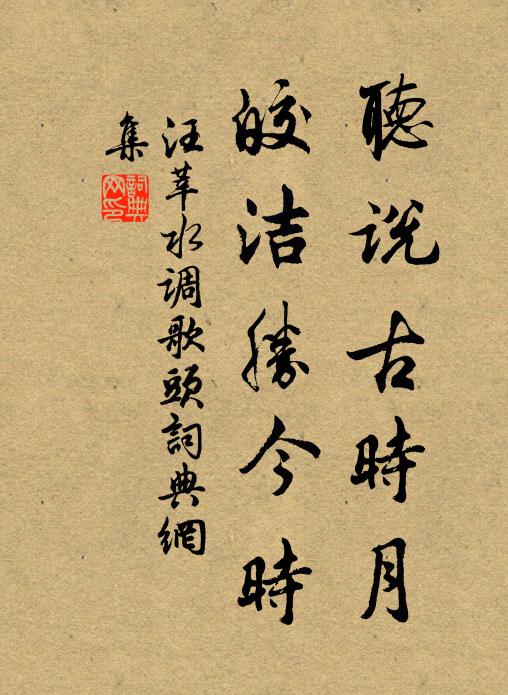 聽説古時月
皎洁勝今時
汪莘水调歌頭詞典網
集
詞典网印